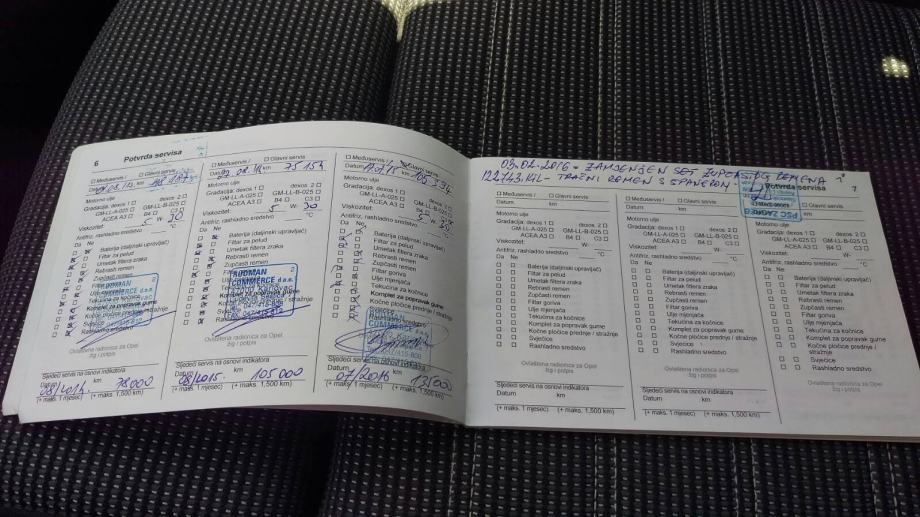 6 Potvrda servisa
☐ Međuservis / ☐ Glavni servis
Datum 08./13. km
Motorno ulje
Gradacija: dexos 1 ☐ dexos 2 ☐
GM-LL-A-025 ☐ GM-LL-B-025 ☐
ACEA A3 ☐ B4 ☐ C3 ☐
Viskozitet: 5 W- 30
Antifriz, rashladno sredstvo °C
Da Ne
Baterija (daljinski upravljač)
Filtar za pelud
Umetak filtera zraka
Rebrasti remen
Zupčasti remen
Svjećice
Ovlaštena radionica za Opel
žig i potpis
Sljedeći servis na osnovi indikatora
Datum km
08/2014. 78000
(+ maks. 1 mjesec) (+ maks. 1,500 km)
☐ Međuservis / ☐ Glavni servis
Datum km 75 154
Motorno ulje
Gradacija: dexos 1 ☐ dexos 2 ☐
GM-LL-A-025 ☐ GM-LL-B-025 ☐
ACEA A3 ☐ B4 ☐ C3 ☐
Viskozitet: 5 W- 30
Antifriz, rashladno sredstvo °C
Da Ne
Baterija (daljinski upravljač)
Filtar za pelud
Umetak filtera zraka
Rebrasti remen
Zupčasti remen
TRUDMAN
COMMERCE d.o.o.
Ovlaštena radionica za Opel
žig i potpis
Sljedeći servis na osnovi indikatora
Datum km
08/2015. 105 000
(+ maks. 1 mjesec) (+ maks. 1,500 km)
☐ Međuservis / Glavni servis
Datum km 105 334
Motorno ulje
Gradacija: dexos 1 ☐ dexos 2 ☐
GM-LL-A-025 ☐ GM-LL-B-025 ☐
ACEA A3 ☐ B4 ☐ C3 ☐
Viskozitet: 5 W- 30
Antifriz, rashladno sredstvo °C
Da Ne
Baterija (daljinski upravljač)
Filtar za pelud
Umetak filtera zraka
Rebrasti remen
Zupčasti remen
Filtar goriva
Ulje mjenjača
Tekućina za kočnice
Komplet za popravak gume
Kočne pločice prednje / stražnje
COMMERCE
Sljedeći servis na osnovi indikatora
Datum km
07/2016 135000
(+ maks. 1 mjesec) (+ maks. 1,500 km)
09.02.2016. - ZAMJENJEN SET ZUPČASTOG REMENA
122.143.KM - TRAČNI REMEN S ŠPANEROM
Potvrda servisa 7
Datum km
Motorno ulje
Gradacija: dexos 1 ☐ dexos 2 ☐
GM-LL-A-025 ☐ GM-LL-B-025 ☐
ACEA A3 ☐ B4 ☐ C3 ☐
Viskozitet: W-
Antifriz, rashladno sredstvo °C
Da Ne
☐ ☐ Baterija (daljinski upravljač)
☐ ☐ Filtar za pelud
☐ ☐ Umetak filtera zraka
☐ ☐ Rebrasti remen
☐ ☐ Zupčasti remen
☐ ☐ Filtar goriva
☐ ☐ Ulje mjenjača
☐ ☐ Tekućina za kočnice
☐ ☐ Komplet za popravak gume
☐ ☐ Kočne pločice prednje / stražnje
☐ ☐ Svjećice
☐ ☐ Rashladno sredstvo
Ovlaštena radionica za Opel
žig i potpis
Sljedeći servis na osnovi indikatora
Datum km
(+ maks. 1 mjesec) (+ maks. 1,500 km)
☐ Međuservis / ☐ Glavni servis
Datum km
Motorno ulje
Gradacija: dexos 1 ☐ dexos 2 ☐
GM-LL-A-025 ☐ GM-LL-B-025 ☐
ACEA A3 ☐ B4 ☐ C3 ☐
Viskozitet: W-
Antifriz, rashladno sredstvo °C
Da Ne
☐ ☐ Baterija (daljinski upravljač)
☐ ☐ Filtar za pelud
☐ ☐ Umetak filtera zraka
☐ ☐ Rebrasti remen
☐ ☐ Zupčasti remen
☐ ☐ Filtar goriva
☐ ☐ Ulje mjenjača
☐ ☐ Tekućina za kočnice
☐ ☐ Komplet za popravak gume
☐ ☐ Kočne pločice prednje / stražnje
☐ ☐ Svjećice
☐ ☐ Rashladno sredstvo
Ovlaštena radionica za Opel
žig i potpis
Sljedeći servis na osnovi indikatora
Datum km
(+ maks. 1 mjesec) (+ maks. 1,500 km)
km
Motorno ulje
Gradacija: dexos 1 ☐ dexos 2 ☐
GM-LL-A-025 ☐ GM-LL-B-025 ☐
ACEA A3 ☐ B4 ☐ C3 ☐
Viskozitet: W-
Antifriz, rashladno sredstvo °C
Da Ne
☐ ☐ Baterija (daljinski upravljač)
☐ ☐ Filtar za pelud
☐ ☐ Umetak filtera zraka
☐ ☐ Rebrasti remen
☐ ☐ Zupčasti remen
☐ ☐ Filtar goriva
☐ ☐ Ulje mjenjača
☐ ☐ Tekućina za kočnice
☐ ☐ Komplet za popravak gume
☐ ☐ Kočne pločice prednje /
stražnje
☐ ☐ Svjećice
☐ ☐ Rashladno sredstvo
Ovlaštena radionica za Opel
žig i potpis
Sljedeći servis na osnovi indikatora
Datum km
(+ maks. 1 mjesec) (+ maks. 1,500 km)